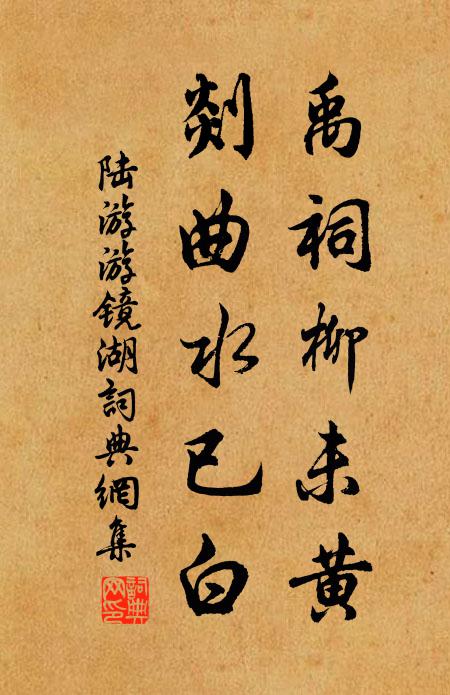 禹祠柳未黄
剡曲水已白
陆游游镜湖詞典網集
詞典网印